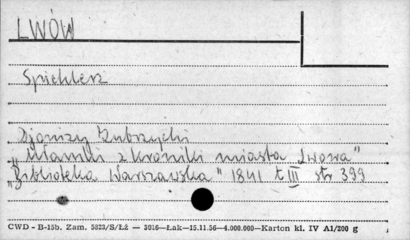 LWÓW
Spichlerz
Djonizy Zubrzycki
„Ułamki z kroniki miasta Lwowa"
„Biblioteka Warszawska" 1841 t III str 399
CWD - B-15b. Zam. 5823/S/Łż — 3016—Łak—15.11.56—4.000.000—Karton kl. IV A1/200 g